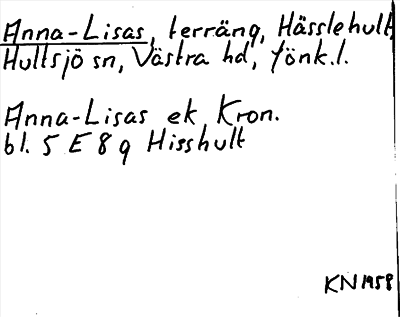 Anna-Lisas, terräng, Hässlehult,
Hultsjö sn, Västra hd, Jönk.l.
Anna-Lisas ek Kron.
bl. 5 E 8 g Hisshult
KN 1958